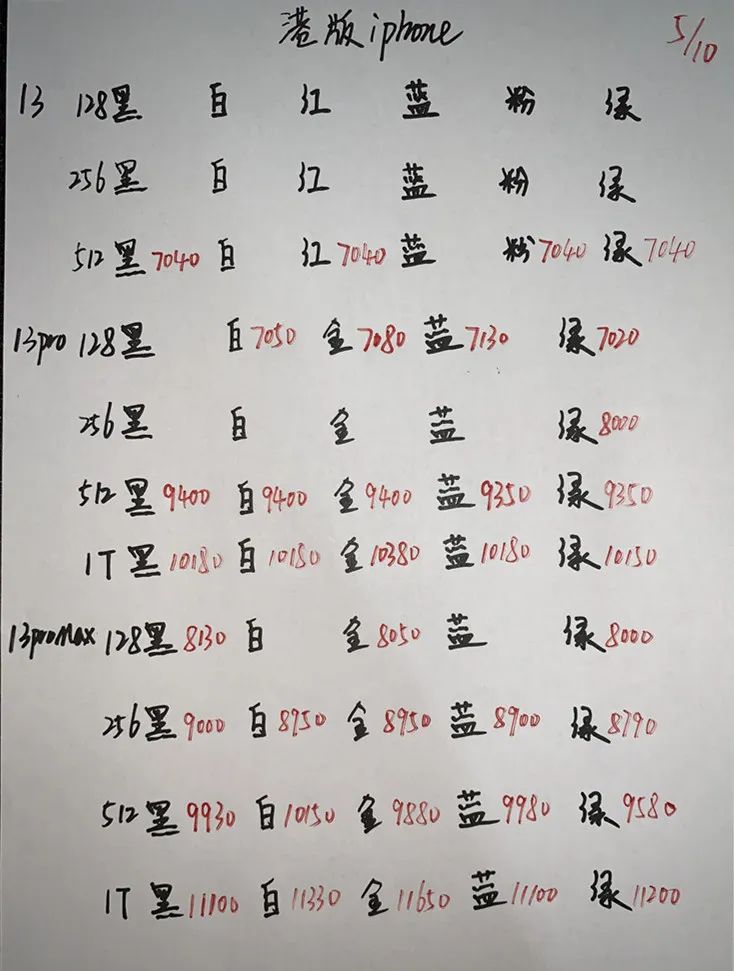 港版iphone 5/10
13 128黑 白 红 蓝 粉 绿
256黑 白 红 蓝 粉 绿
512黑7040 白 红7040 蓝 粉7040 绿7040
13pro 128黑 白7050 金7080 蓝7130 绿7020
256黑 白 金 蓝 绿8000
512黑9400 白9400 金9400 蓝9350 绿9350
1T黑10180 白10180 金10380 蓝10180 绿10150
13proMax 128黑8130 白 金8050 蓝 绿8000
256黑9000 白8950 金8950 蓝8900 绿8790
512黑9930 白10150 金9880 蓝9980 绿9580
1T黑11100 白11330 金11650 蓝11100 绿11200